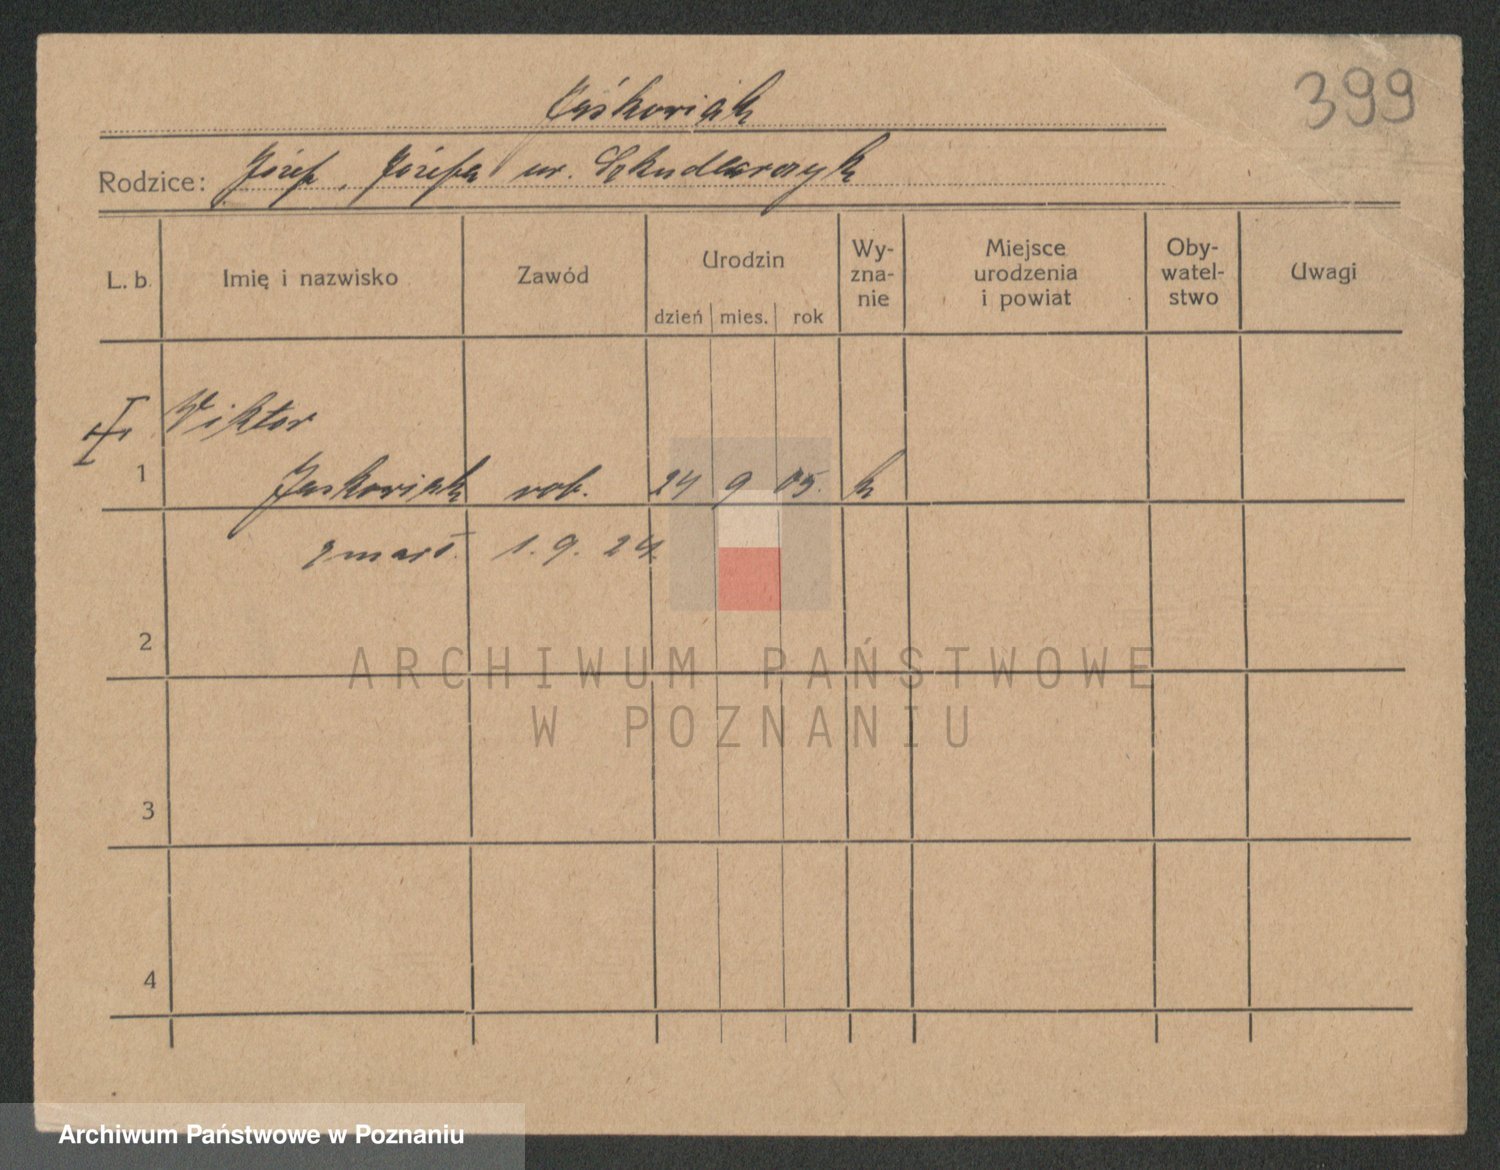 399
Jaśkowiak
Rodzice: Józef, Józefa ur. Szkudlarczyk
L. b. Imię i nazwisko Zawód Urodzin Wy-zna-nie Miejsce urodzenia i powiat Oby-watel-stwo Uwagi
dzień mies. rok
Wiktor
1 Jaskowiak rob. 24 9 05. k
zmarł. 1. 9. 24.
2
ARCHIWUM PAŃSTWOWE
W POZNANIU
3
4
Archiwum Państwowe w Poznaniu